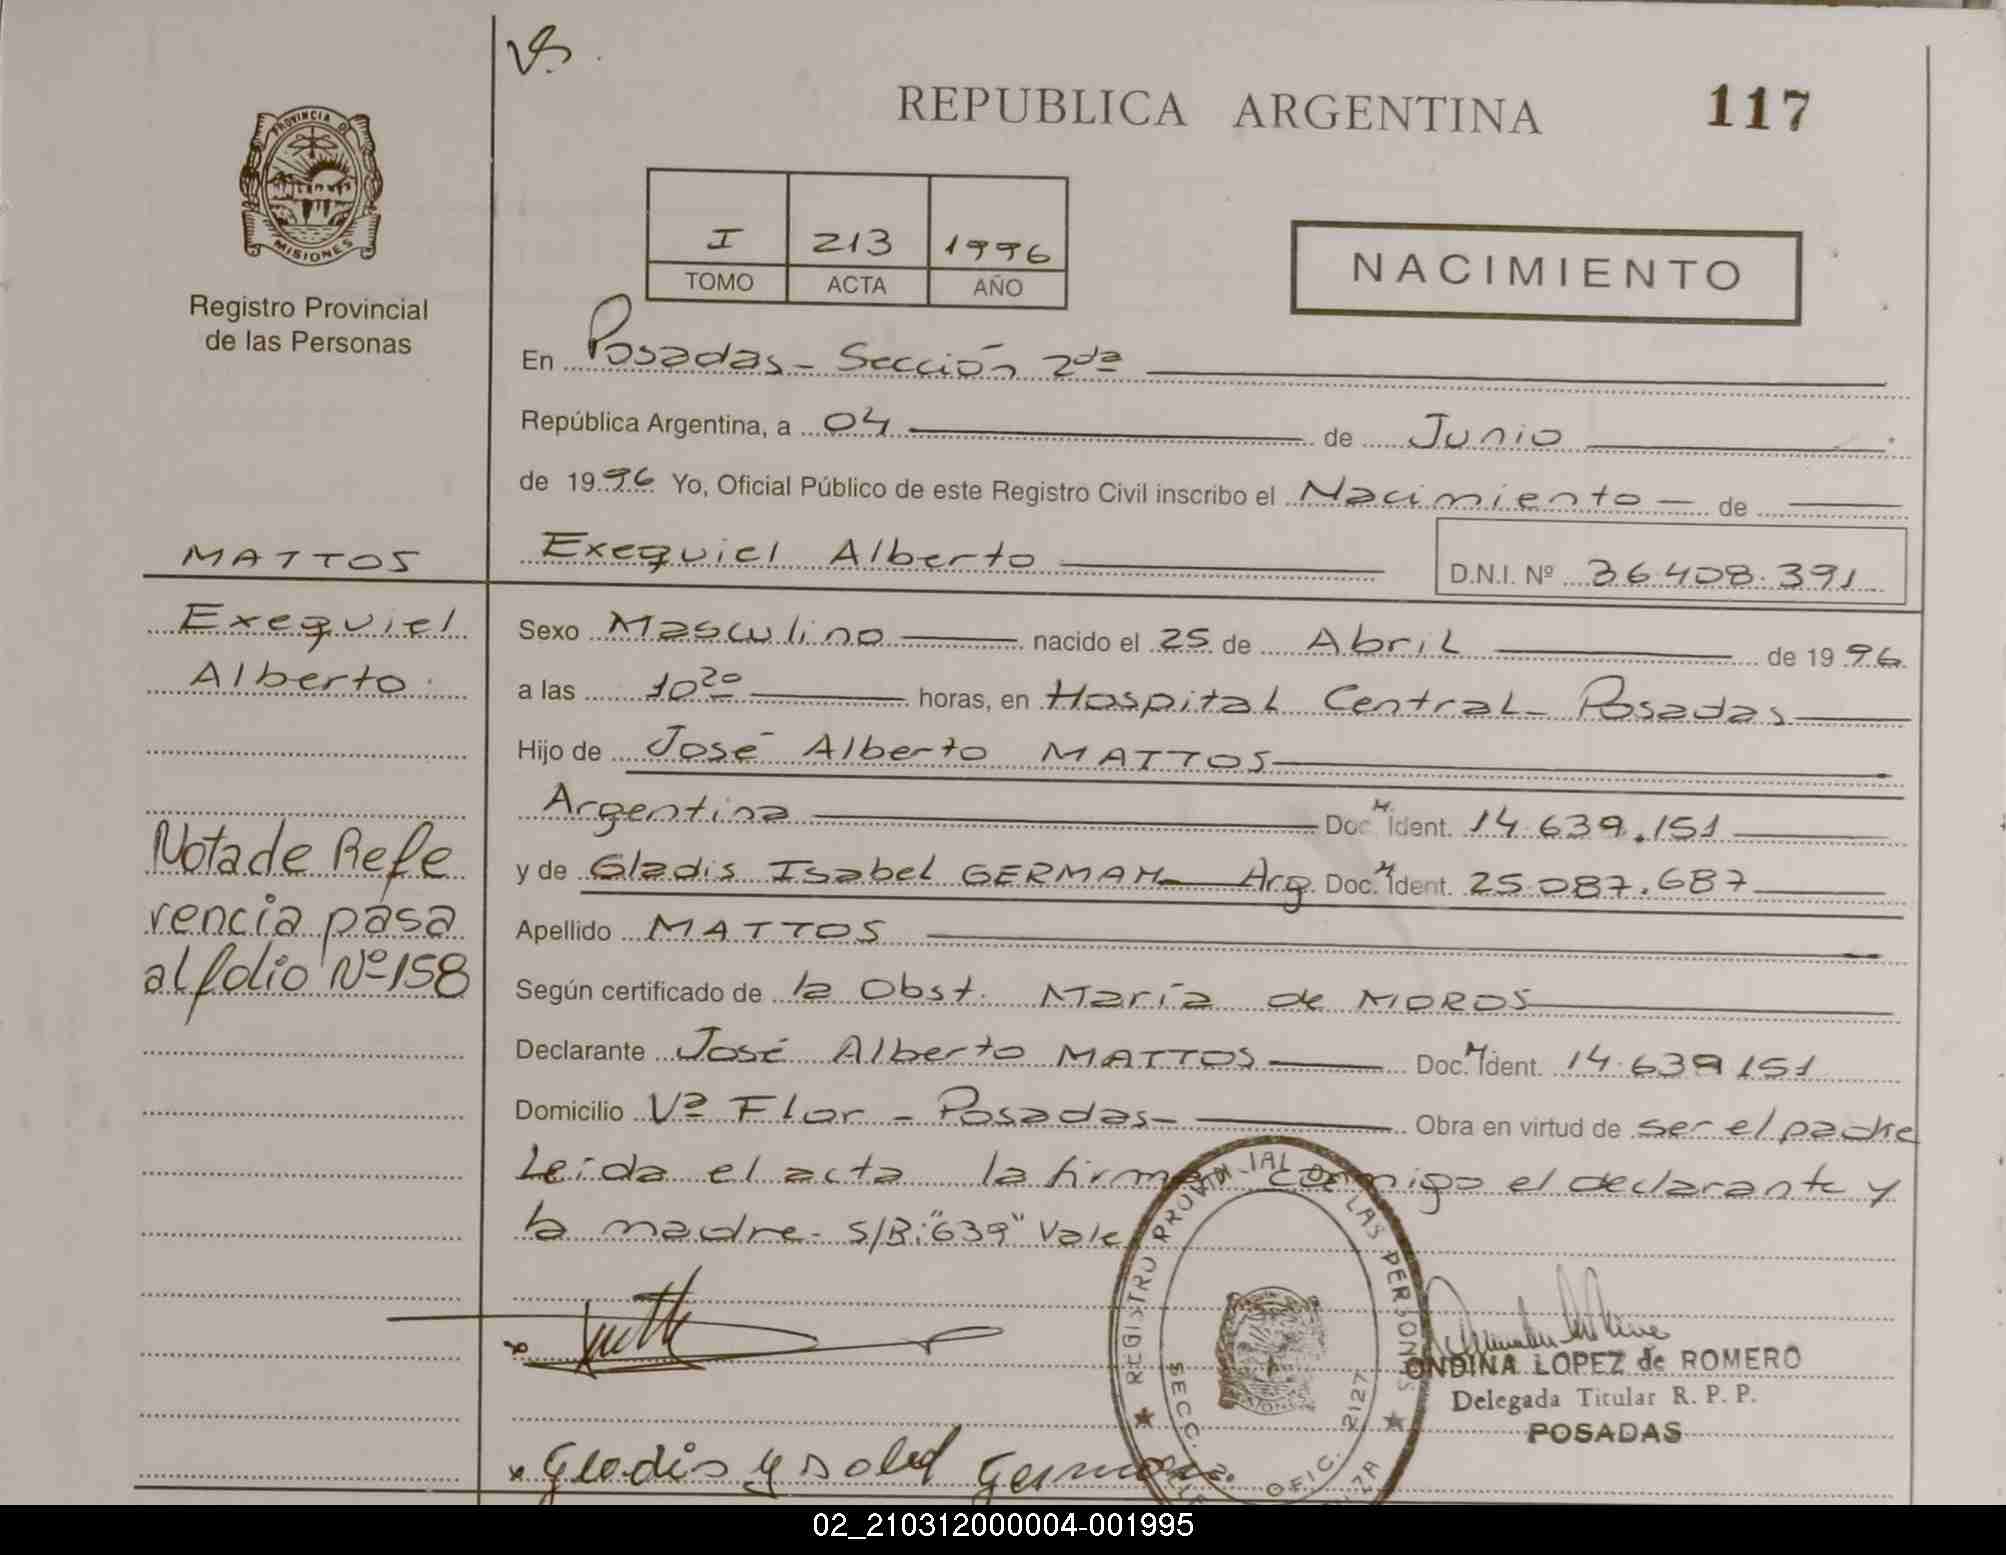 REPUBLICA ARGENTINA
117
PROVINCIA DE
MISIONES
Registro Provincial
de las Personas
I 213 1996
TOMO ACTA AÑO
NACIMIENTO
En Posadas - Sección 2da
República Argentina, a 04 de Junio
de 1996 Yo, Oficial Público de este Registro Civil inscribo el Nacimiento de
MATTOS
Exequiel Alberto D.N.I. Nº 36.408.391
Exequiel
Alberto
Sexo Masculino nacido el 25 de Abril de 1996
a las 10 20 horas, en Hospital Central - Posadas
Hijo de José Alberto MATTOS
Argentina Doc. M. Ident. 14.639.151
y de Gladis Isabel GERMAN Arg. Doc. M Ident. 25.087.687
Apellido MATTOS
Nota de Refe
rencia pasa
al folio Nº 158
Según certificado de la Obst. María de MOROS
Declarante José Alberto MATTOS Doc. M Ident. 14.639151
Domicilio Vª Flor - Posadas - Obra en virtud de ser el padre
Leida el acta la firma conmigo el declarante y
la madre - S/R: "639" Vale
REGISTRO PROVINCIAL DE LAS PERSONAS
SECC. 2º OFIC. 2127
ONDINA LOPEZ de ROMERO
Delegada Titular R. P. P.
POSADAS
x Gladis Ysabel German
02_210312000004-001995